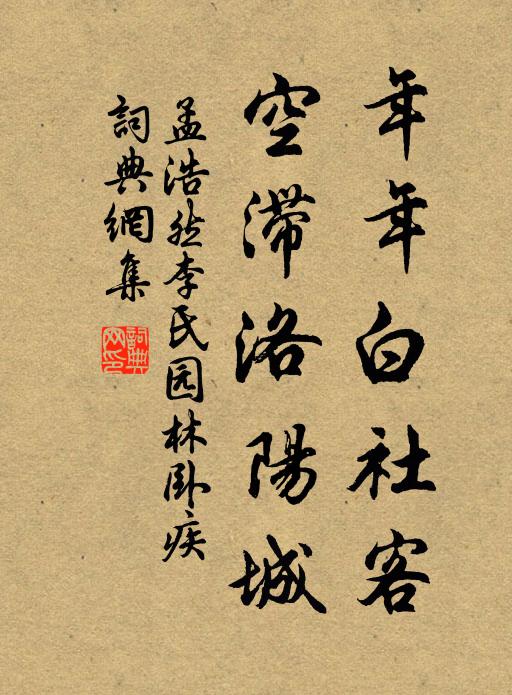 年年白社客
空滞洛陽城
孟浩然李氏园林卧疾
詞典網集
詞典网印